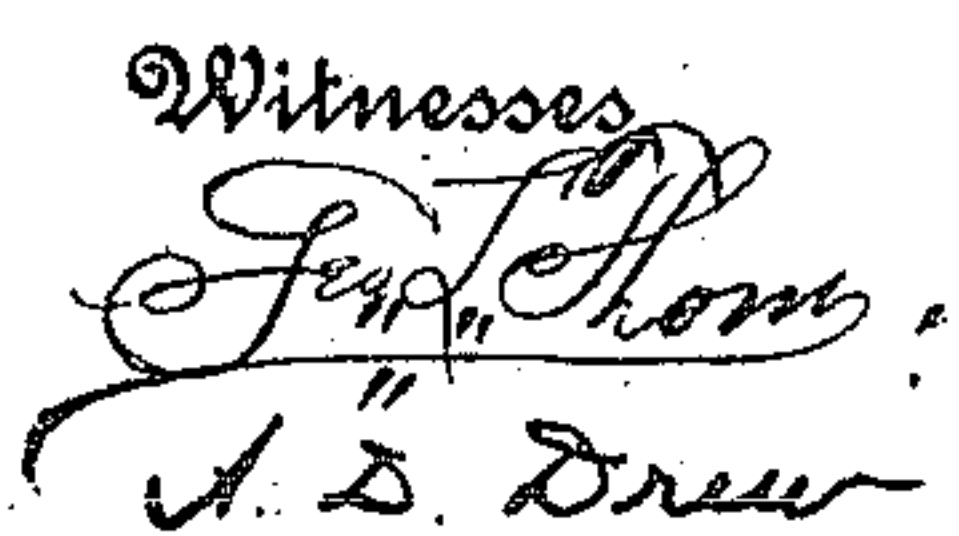 Witnesses
Thom
A. D. Drew